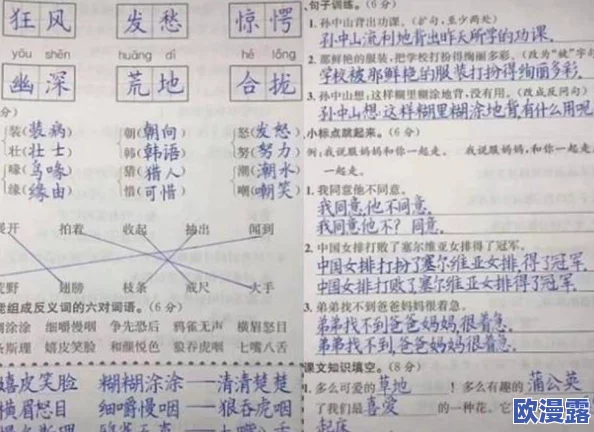 狂风 发愁 惊愕
yōu shēn huāng dì hé lǒng
幽深 荒地 合拢
分)
装(装病) 朝(朝向) 怒(发怒)
壮(壮士) 韩(韩语) 努(努力)
喙(鸟喙) 猎(猎人) 潮(潮水)
缘(缘由) 惜(可惜) 嘲(嘲笑)
展开 拍着 收起 抽出 闻到
荒野 翅膀 枝条 戒尺 大手
组成反义词的六对词语。(6分)
糊涂涂 细嚼慢咽 争先恐后 鸦雀无声 横眉怒目
条斯理 嬉皮笑脸 和颜悦色 狼吞虎咽 七嘴八舌
嬉皮笑脸 糊糊涂涂——清清楚楚
横眉怒目 细嚼慢咽——狼吞虎咽
句子训练。(6分)
1. 孙中山背出功课。(扩句,至少两处)
孙中山流利地背出昨天所学的功课.
2. 那鲜艳的服装,把学校打扮得绚丽多彩。(改为“被”字句)
学校被那鲜艳的服装打扮得绚丽多彩.
3. 孙中山想:这样糊里糊涂地背,没有用。(改成反问句)
孙中山想:这样糊里糊涂地背有什么用呢
小标点跳起来。(6分)
例:我说服妈妈和你一起走。 我说服妈妈,和你一起走。
1.我同意他不同意。
我同意,他不同意.
我同意他不?同意.
2.中国女排打败了塞尔维亚女排得了冠军。
中国女排打扮了塞尔维亚女排,得了冠军.
中国女排打败了塞尔维亚女排得了冠军.
3.弟弟找不到爸爸妈妈很着急。
弟弟找不到爸爸妈妈,很着急.
弟弟找不到,爸爸妈妈很着急.
课文知识填空。(8分)
1. 多么可爱的草地!多么有趣的蒲公英
了我们最喜爱的一种花。它
起床
欧漫露